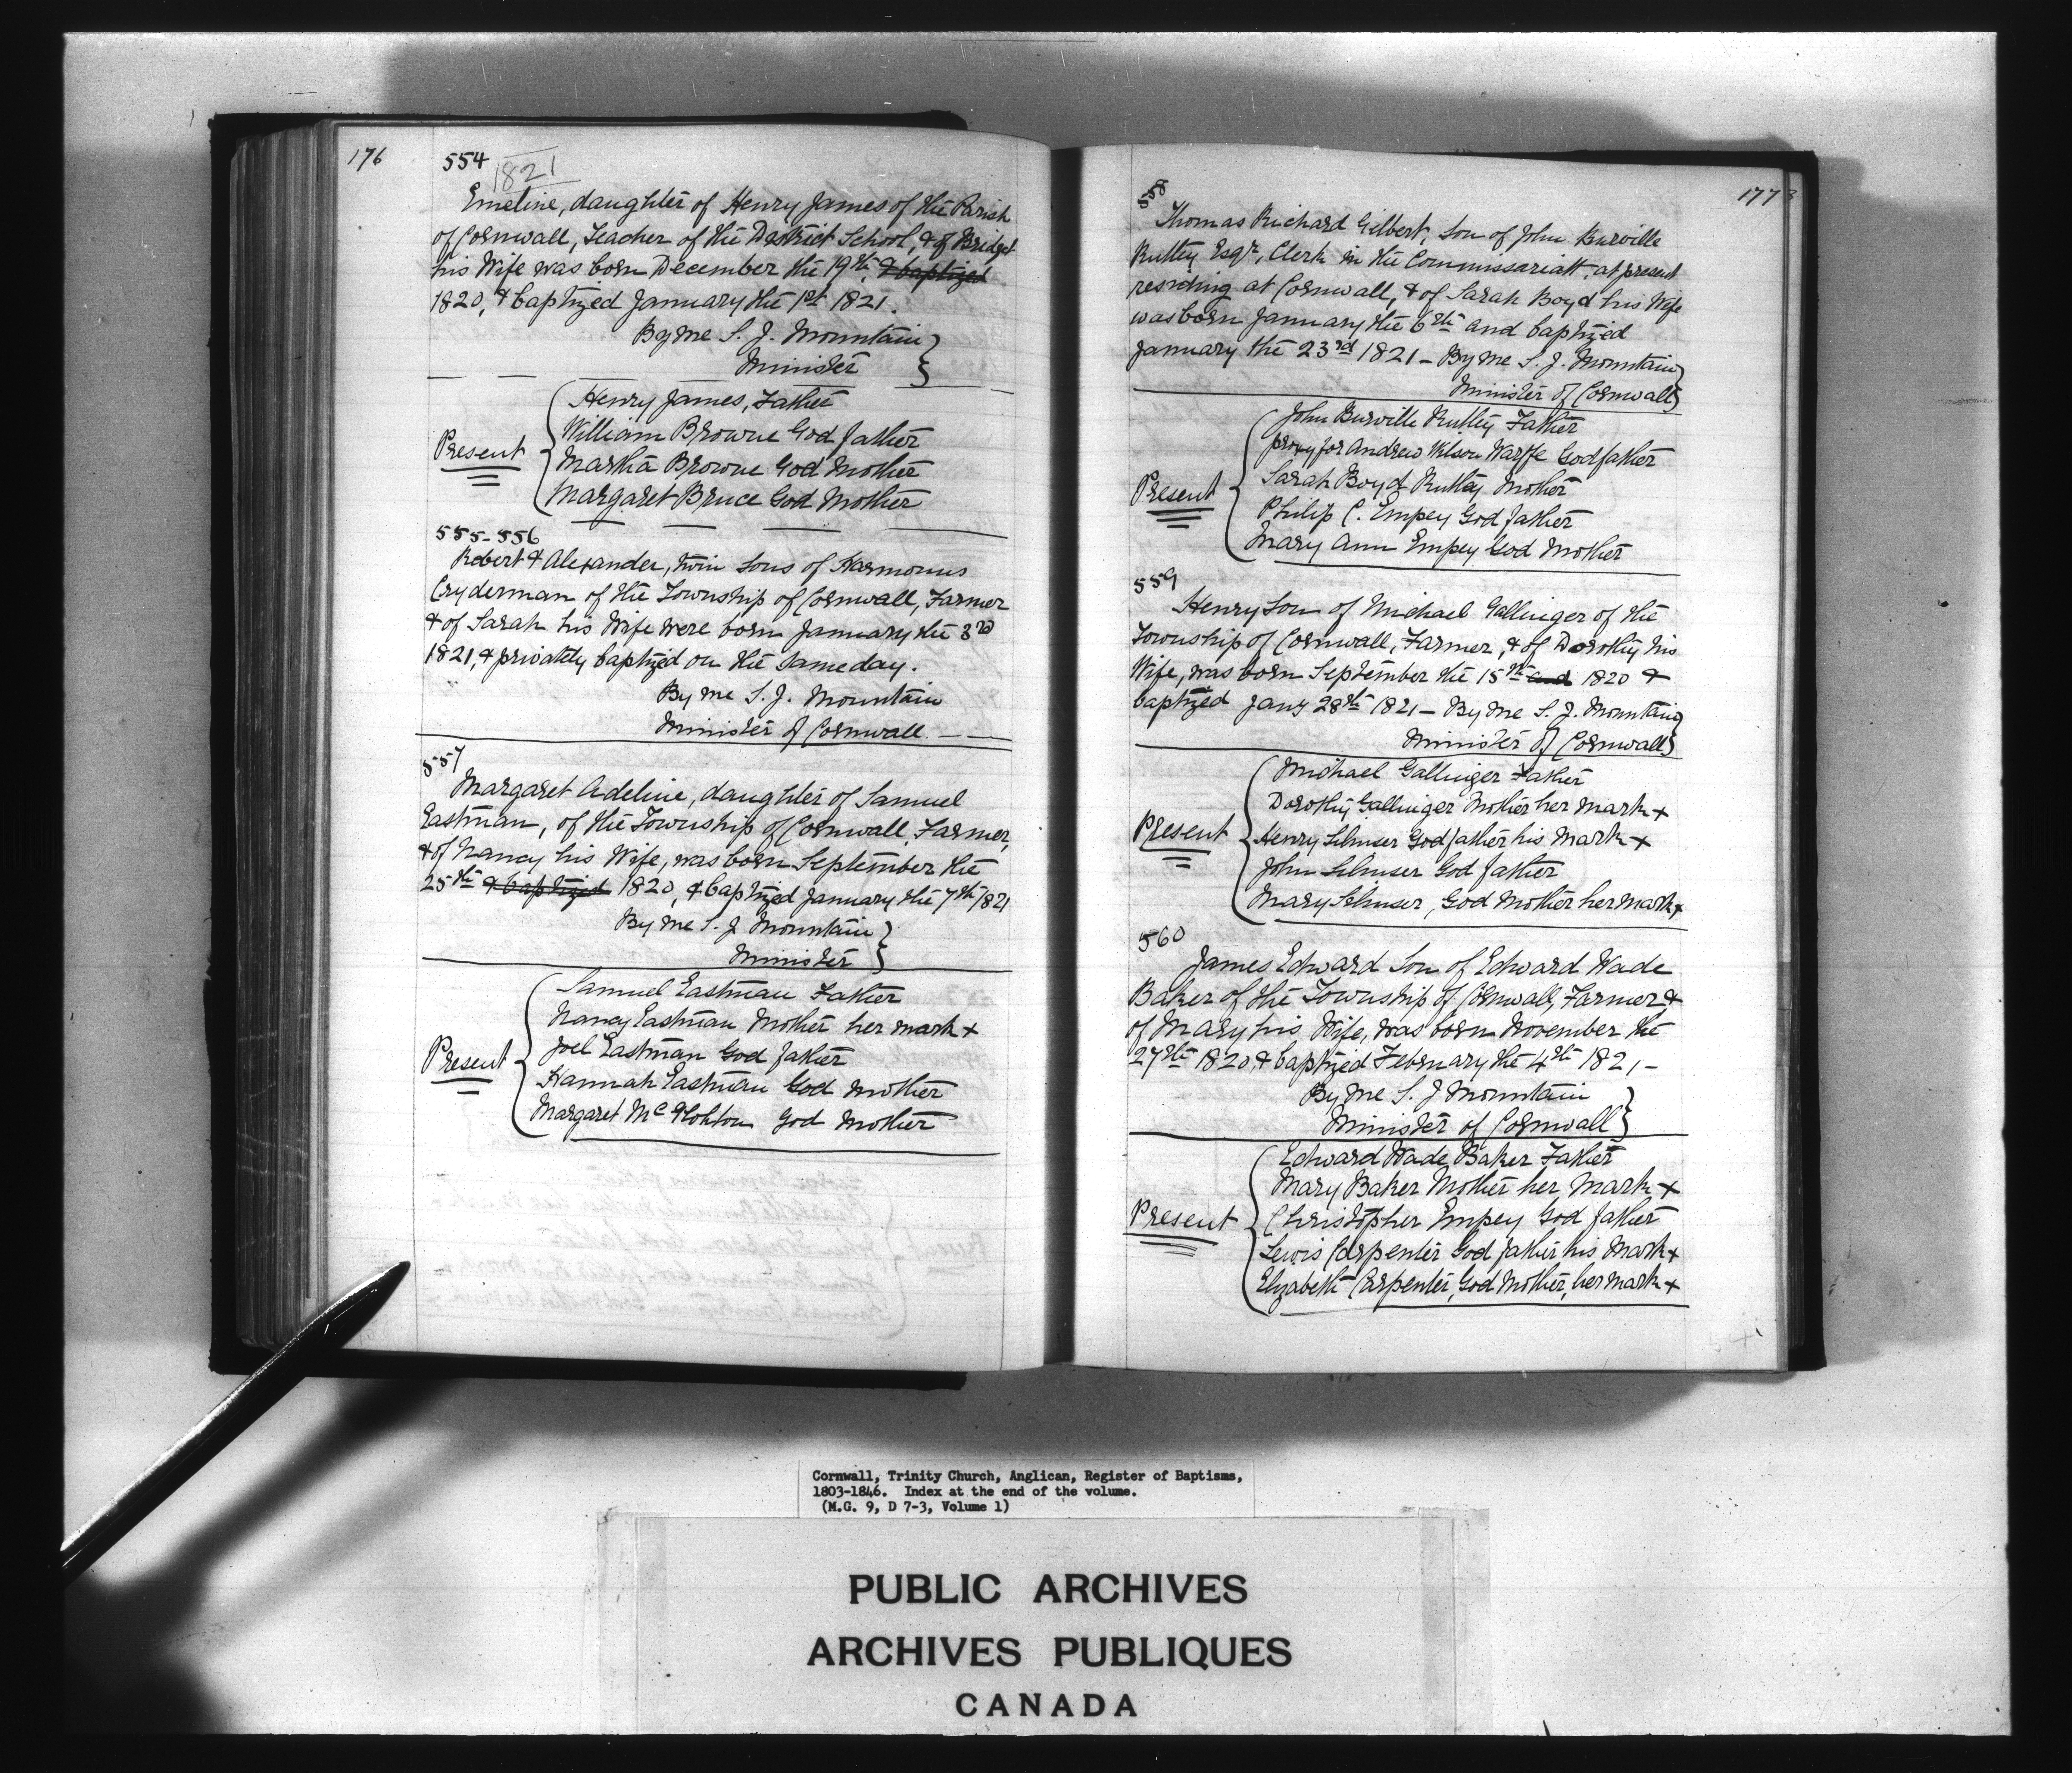 176
554
1821
Emeline, daughter of Henry James of the Parish
of Cornwall, Teacher of the District School, & of Bridget
his Wife was born December the 19th & baptized
1820, & baptized January the 1st 1821.
By me S. J. Mountain
Minister
Present
Henry James, Father
William Browne God father
Martha Browne God Mother
Margaret Bruce God Mother
555-556
Robert & Alexander, twin sons of Harmonus
Cryderman of the Township of Cornwall, Farmer
& of Sarah his Wife were born January the 3rd
1821, & privately baptized on the same day.
By me S. J. Mountain
Minister of Cornwall
557
Margaret Adeline, daughter of Samuel
Eastman, of the Township of Cornwall, Farmer,
& of Nancy his Wife, was born September the
25th & baptized 1820, & baptized January the 7th 1821
By me S. J Mountain
Minister
Present
Samuel Eastman Father
Nancy Eastman Mother her mark +
Joel Eastman God father
Hannah Eastman God Mother
Margaret God Mother
177
558
Thomas Richard Gilbert, Son of John Burville
Ruttey Esqr, Clerk in the Commissariatt, at present
residing at Cornwall, & of Sarah Boyd his Wife
was born January the 6th and baptized
January the 23rd 1821 - By me S. J. Mountain
Minister of Cornwall
Present
John Burville Ruttey Father
proxy for Andrew Wilson Godfather
Sarah Boyd Ruttey Mother
Philip C. Empey God father
Mary Ann Empey God Mother
559
Henry Son of Michael Gallinger of the
Township of Cornwall, Farmer, & of Dorothy his
Wife, was born September the 15th and 1820 &
baptized Jany 28th 1821 - By me S. J. Mountain
Minister of Cornwall
Present
Michael Gallinger Father
Dorothy Gallinger Mother her mark +
Henry Godfather his mark +
John God father
Mary God Mother her mark +
560
James Edward Son of Edward Wade
Baker of the Township of Cornwall, Farmer &
of Mary his Wife, was born November the
27th 1820, & baptized February the 4th 1821 -
By me S. J Mountain
Minister of Cornwall
Present
Edward Wade Baker Father
Mary Baker Mother her mark +
Christopher Empey God father
Lewis Carpenter God father his mark +
Elizabeth Carpenter, God Mother, her mark +
Cornwall, Trinity Church, Anglican, Register of Baptisms,
1803-1846. Index at the end of the volume.
(M.G. 9, D 7-3, Volume 1)
PUBLIC ARCHIVES
ARCHIVES PUBLIQUES
CANADA